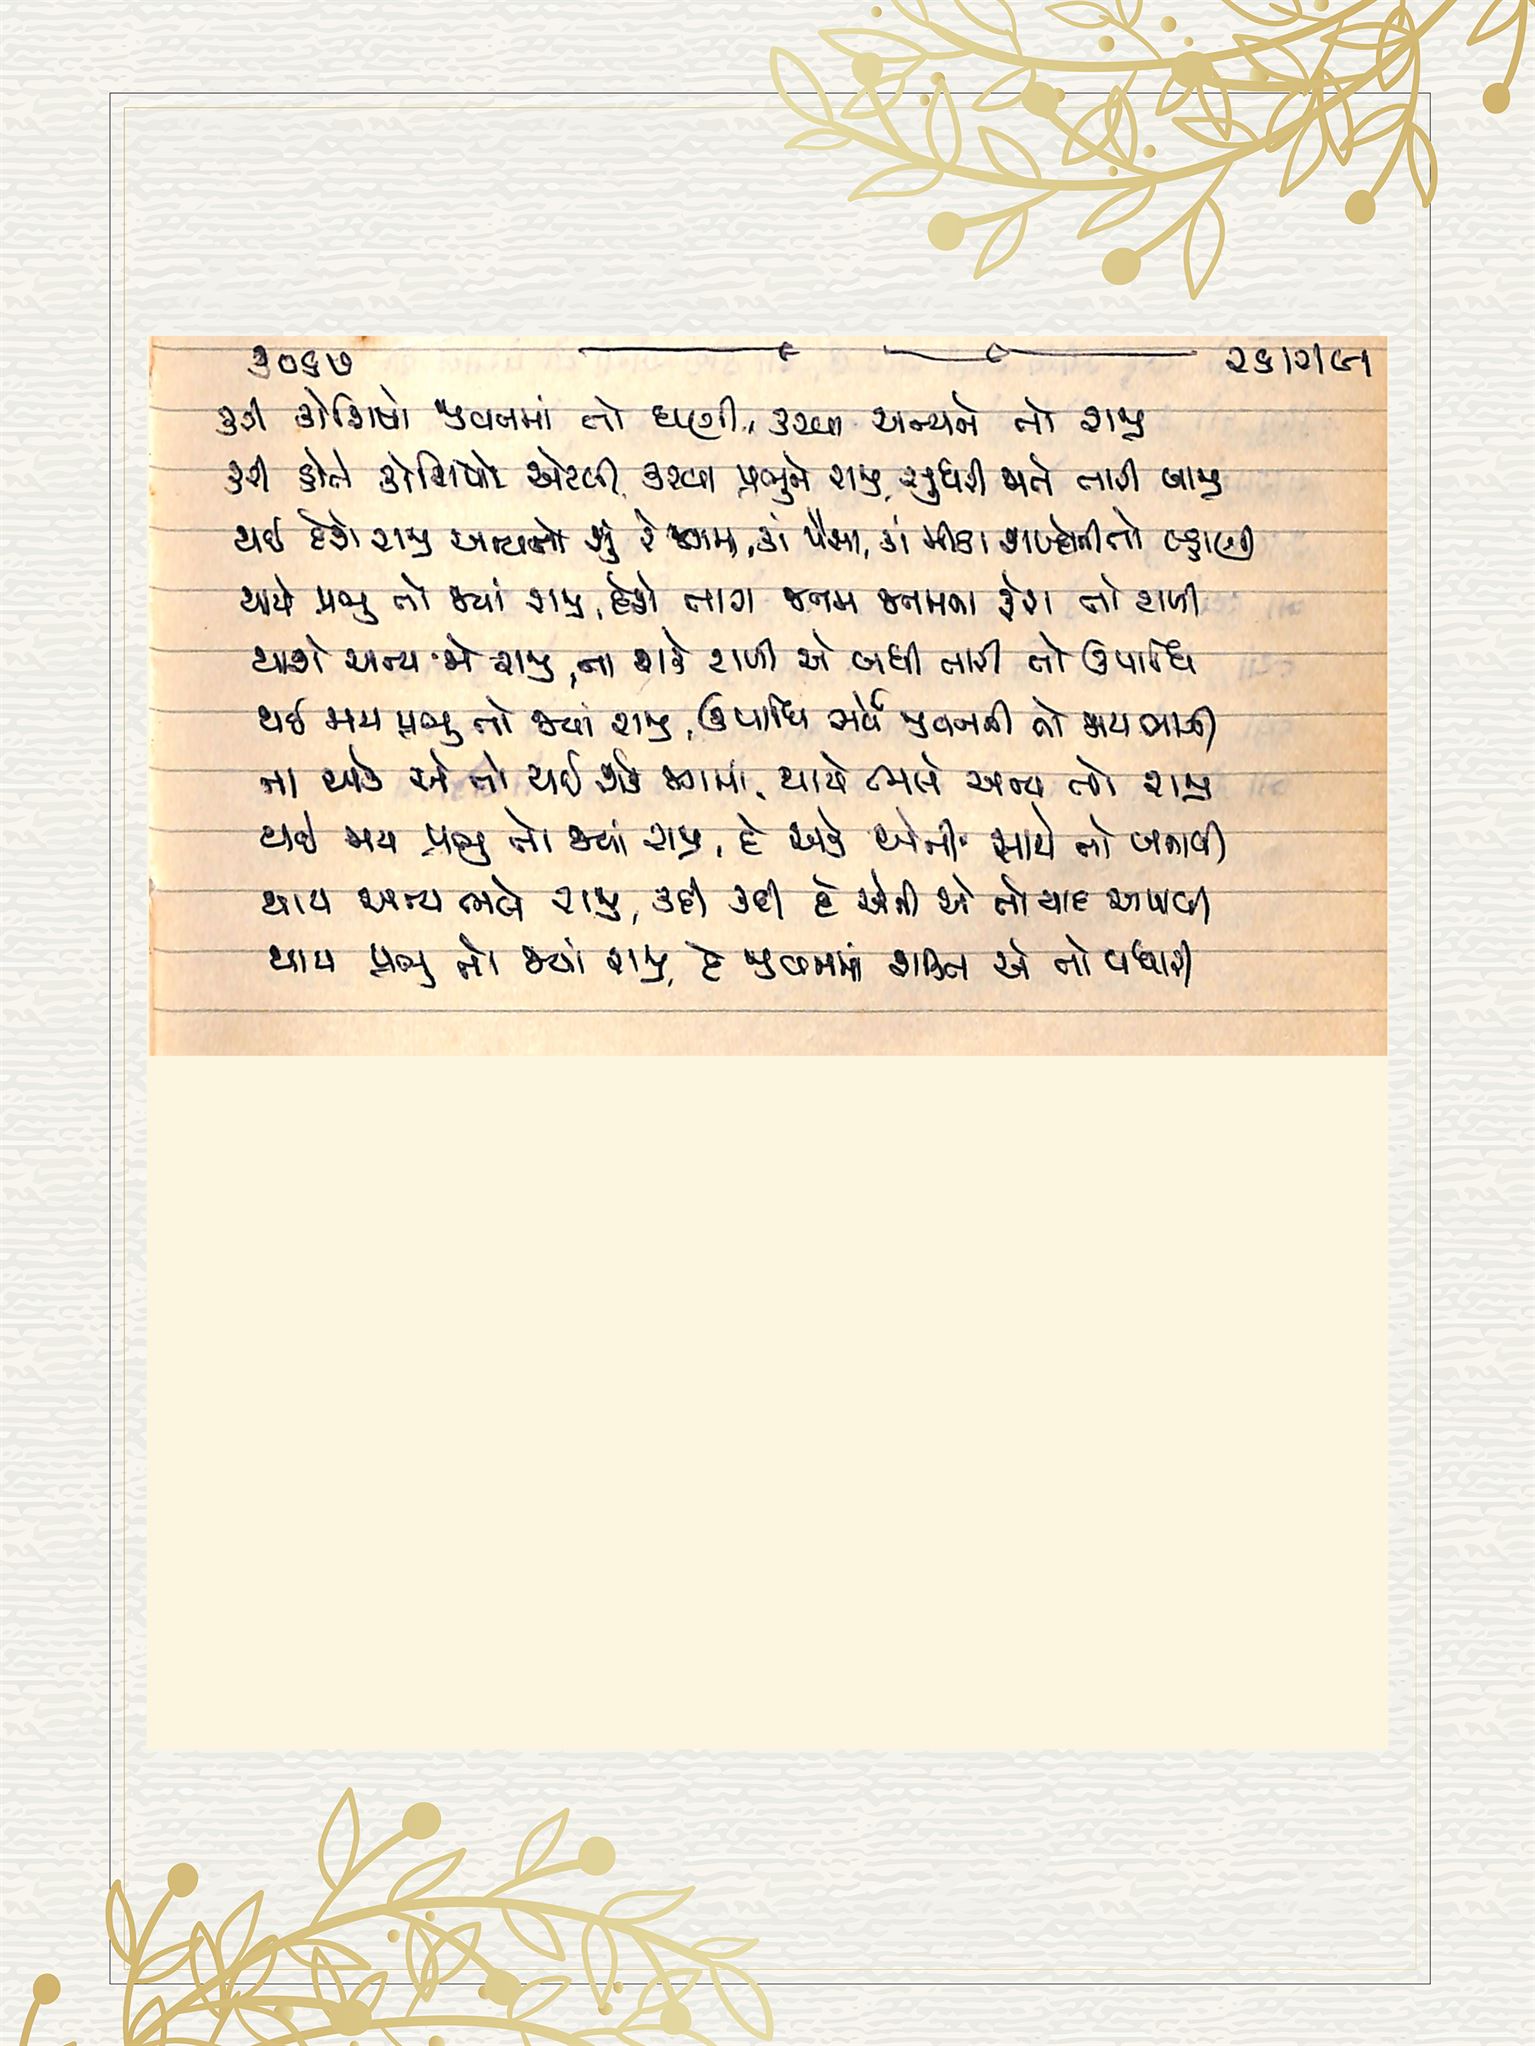 ૩૦૬૭ ૨૬।૨।૯૧
કરી કોશિષો જીવનમાં તો ઘણી, કરવા અન્યને તો રાજી
કરી હોત કોશિષો એટલી કરવા પ્રભુને રાજી, સુધરી જાત તારી બાજી
થઈ દેશે રાજી અન્યતો શું રે જગમાં, કાં પૈસા, કાં મીઠા શબ્દોનીતો લ્હાણી
થાશે પ્રભુ તો જ્યાં રાજી, દેશે તારા જનમ જનમના ફેરા તો ટાળી
થાશે અન્ય જો રાજી, ના શકે ટાળી એ બધી તારી તો ઉપાધિ
થઈ જાય પ્રભુ તો જ્યાં રાજી, ઉપાધિ સર્વે જીવનની તો જાય ભાગી
ના થાકે એ તો થઈ શકે જગમાં, થાયે ભલે અન્ય તો રાજી
થઈ જાય પ્રભુ તો જ્યાં રાજી, દે શકે એની સાથે તો બનાવી
થાય અન્ય ભલે રાજી, કદી કદી દે એની એ તો યાદ અપાવી
થાય પ્રભુ તો જ્યાં રાજી, દે જીવનમાં શક્તિ એ તો વધારી